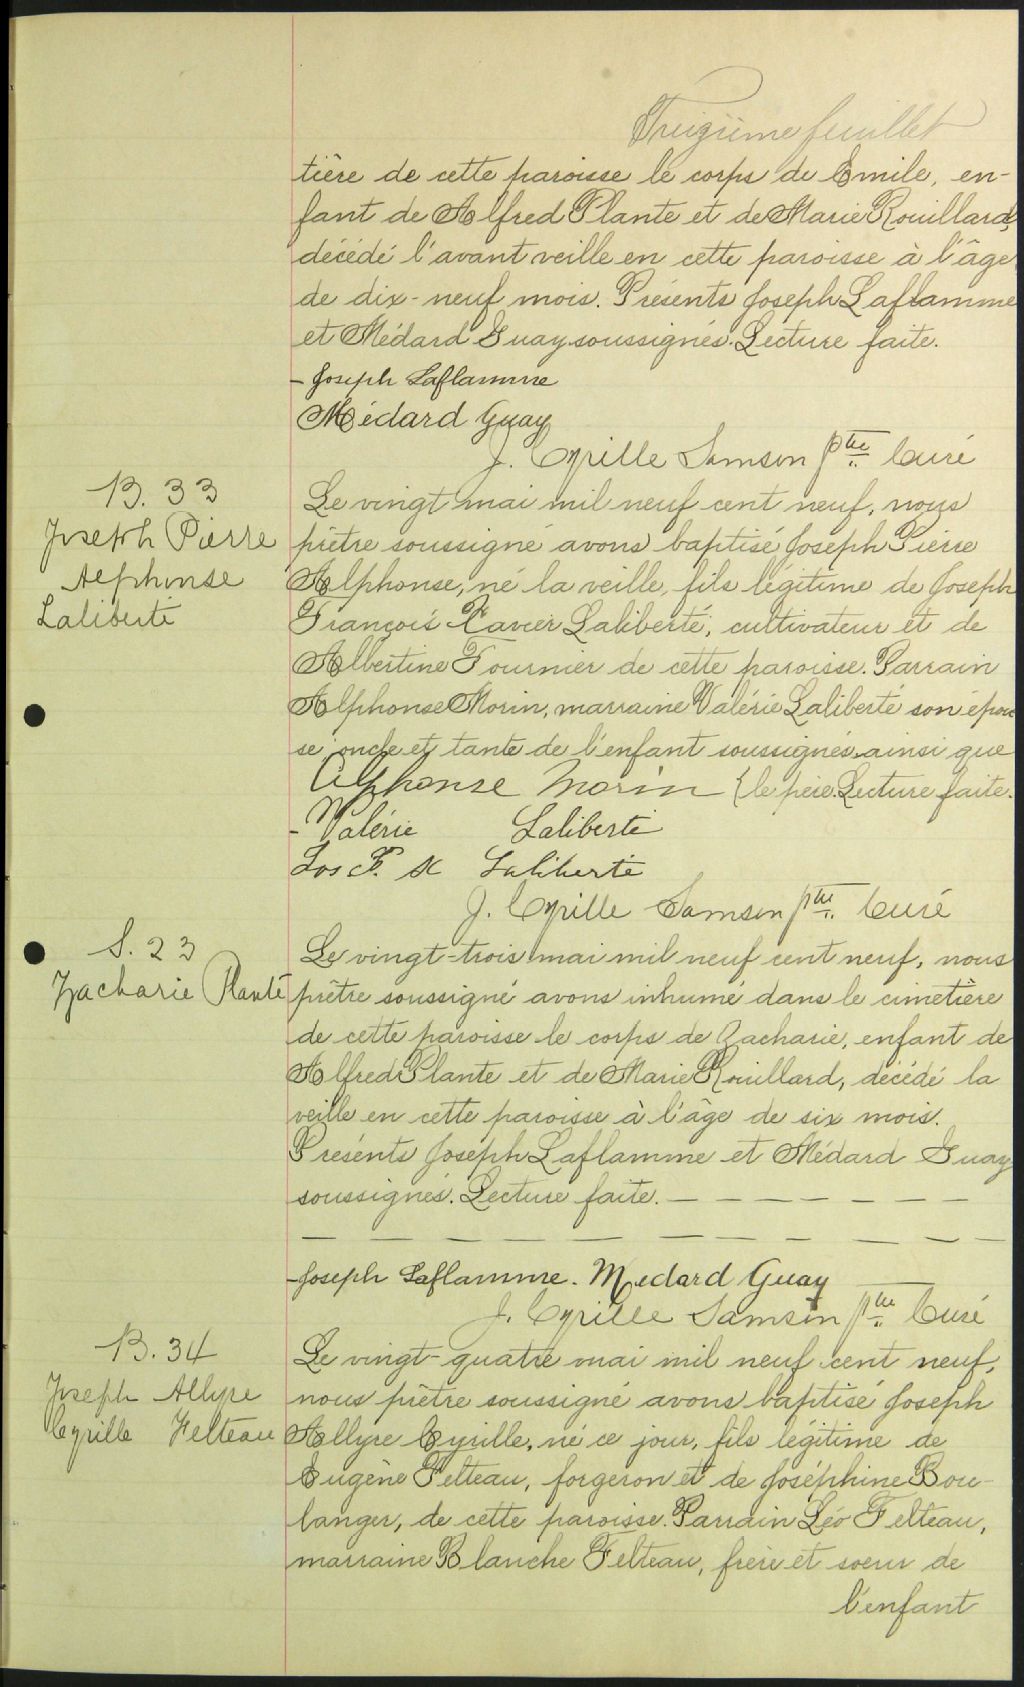 Treizième feuillet
tière de cette paroisse le corps de Emile, en-
fant de Alfred Plante et de Marie Rouillard,
décédé l'avant veille en cette paroisse à l'âge
de dix-neuf mois. Présents Joseph Laflamme
et Médard Guay soussignés. Lecture faite.
- Joseph Laflamme
Médard Guay
J. Cyrille Samson Ptre Curé
B. 33
Joseph Pierre
Alphonse
Laliberté
Le vingt mai mil neuf cent neuf, nous
prêtre soussigné avons baptisé Joseph Pierre
Alphonse, né la veille, fils légitime de Joseph
François Xavier Laliberté, cultivateur et de
Albertine Fournier de cette paroisse. Parrain
Alphonse Morin, marraine Valérie Laliberté son épou
se, oncle et tante de l'enfant soussignés ainsi que
Alphonse Morin { le père. Lecture faite.
- Valérie Laliberté
Jos F. X Laliberté
J. Cyrille Samson ptre. Curé
S. 23
Zacharie Plante
Le vingt-trois mai mil neuf cent neuf, nous
prêtre soussigné avons inhumé dans le cimetière
de cette paroisse le corps de Zacharie, enfant de
Alfred Plante et de Marie Rouillard, décédé la
veille en cette paroisse à l'âge de six mois.
Présents Joseph Laflamme et Médard Guay
soussignés. Lecture faite. — — — — — — — —
— — — — — — — — — — — —
- Joseph Laflamme. Medard Guay
J. Cyrille Samson ptre. Curé
B. 34
Joseph Allyre
Cyrille Felteau
Le vingt-quatre mai mil neuf cent neuf,
nous prêtre soussigné avons baptisé Joseph
Allyre Cyrille, né ce jour, fils légitime de
Eugène Felteau, forgeron et de Joséphine Bou-
langer, de cette paroisse. Parrain Léo Felteau,
marraine Blanche Felteau, frère et soeur de
l'enfant